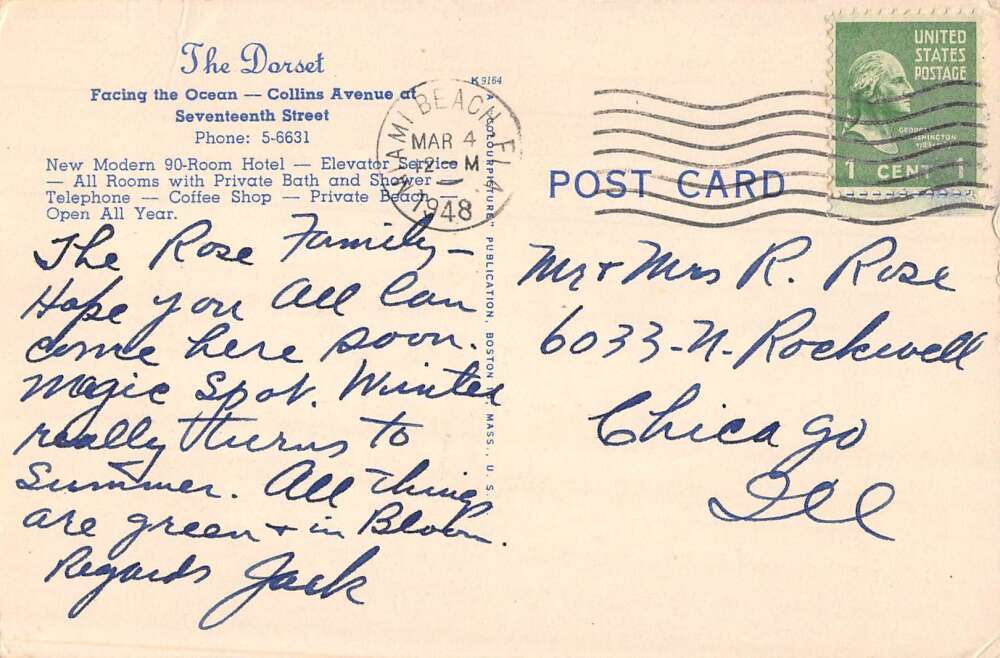 The Dorset
Facing the Ocean — Collins Avenue at
Seventeenth Street
Phone: 5-6631
New Modern 90-Room Hotel — Elevator Service
— All Rooms with Private Bath and Shower —
Telephone — Coffee Shop — Private Beach —
Open All Year.
The Rose Family —
Hope you all can
come here soon.
Magic Spot. Winter
really turns to
Summer. All things
are green + in Bloom.
Regards Jack
K 9164
"COLOURPICTURE" PUBLICATION, BOSTON, MASS., U. S. A.
MIAMI BEACH, FLA.
MAR 4
12 M
1948
POST CARD
UNITED
STATES
POSTAGE
GEORGE
WASHINGTON
1 CENT 1
Mr + Mrs R. Rose
6033-N-Rockwell
Chicago
Ill